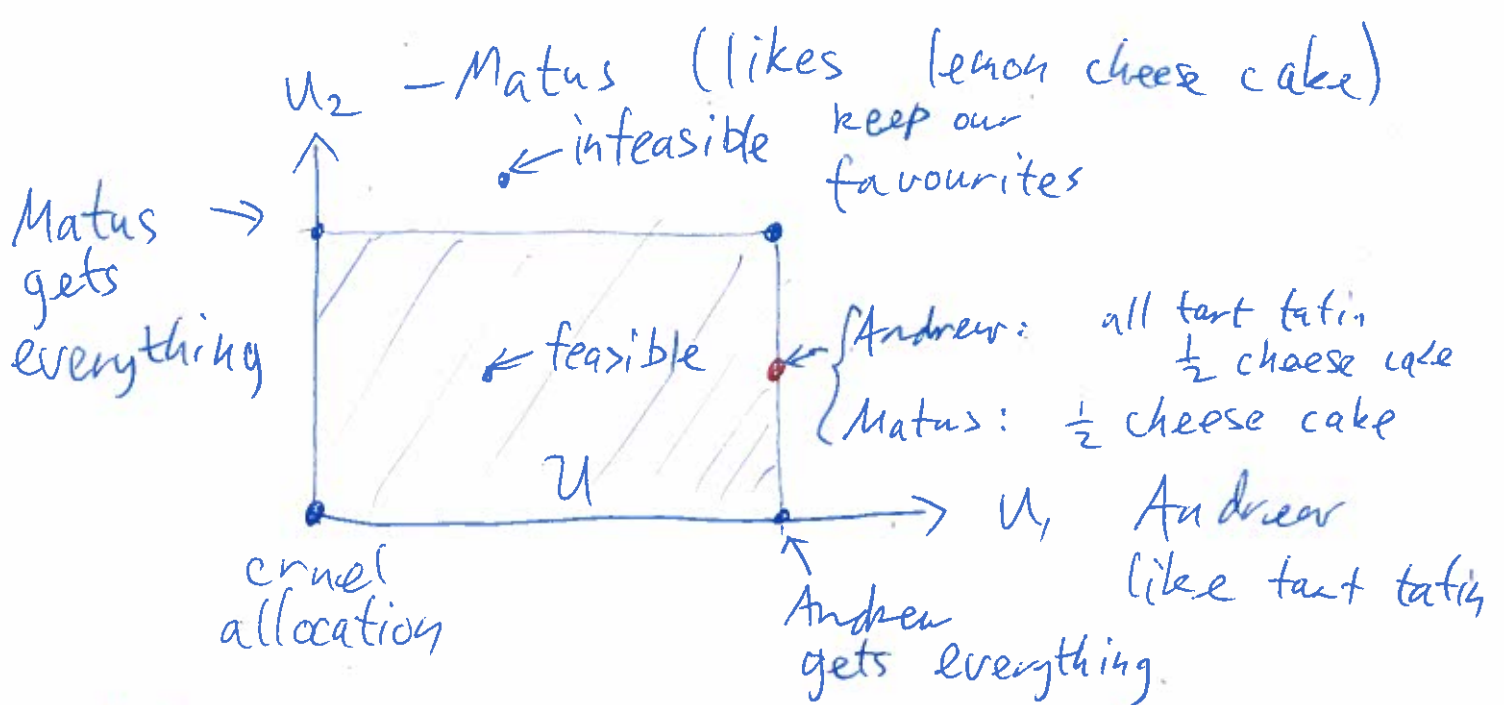 u₂ – Matus (likes lemon cheese cake)
← infeasible
keep our
favourites
Matus →
gets
everything
← feasible
← { Andrew: all tart tatin
½ cheese cake
Matus: ½ cheese cake
U
u₁ Andrew
like tart tatin
cruel
allocation
Andrew
gets everything